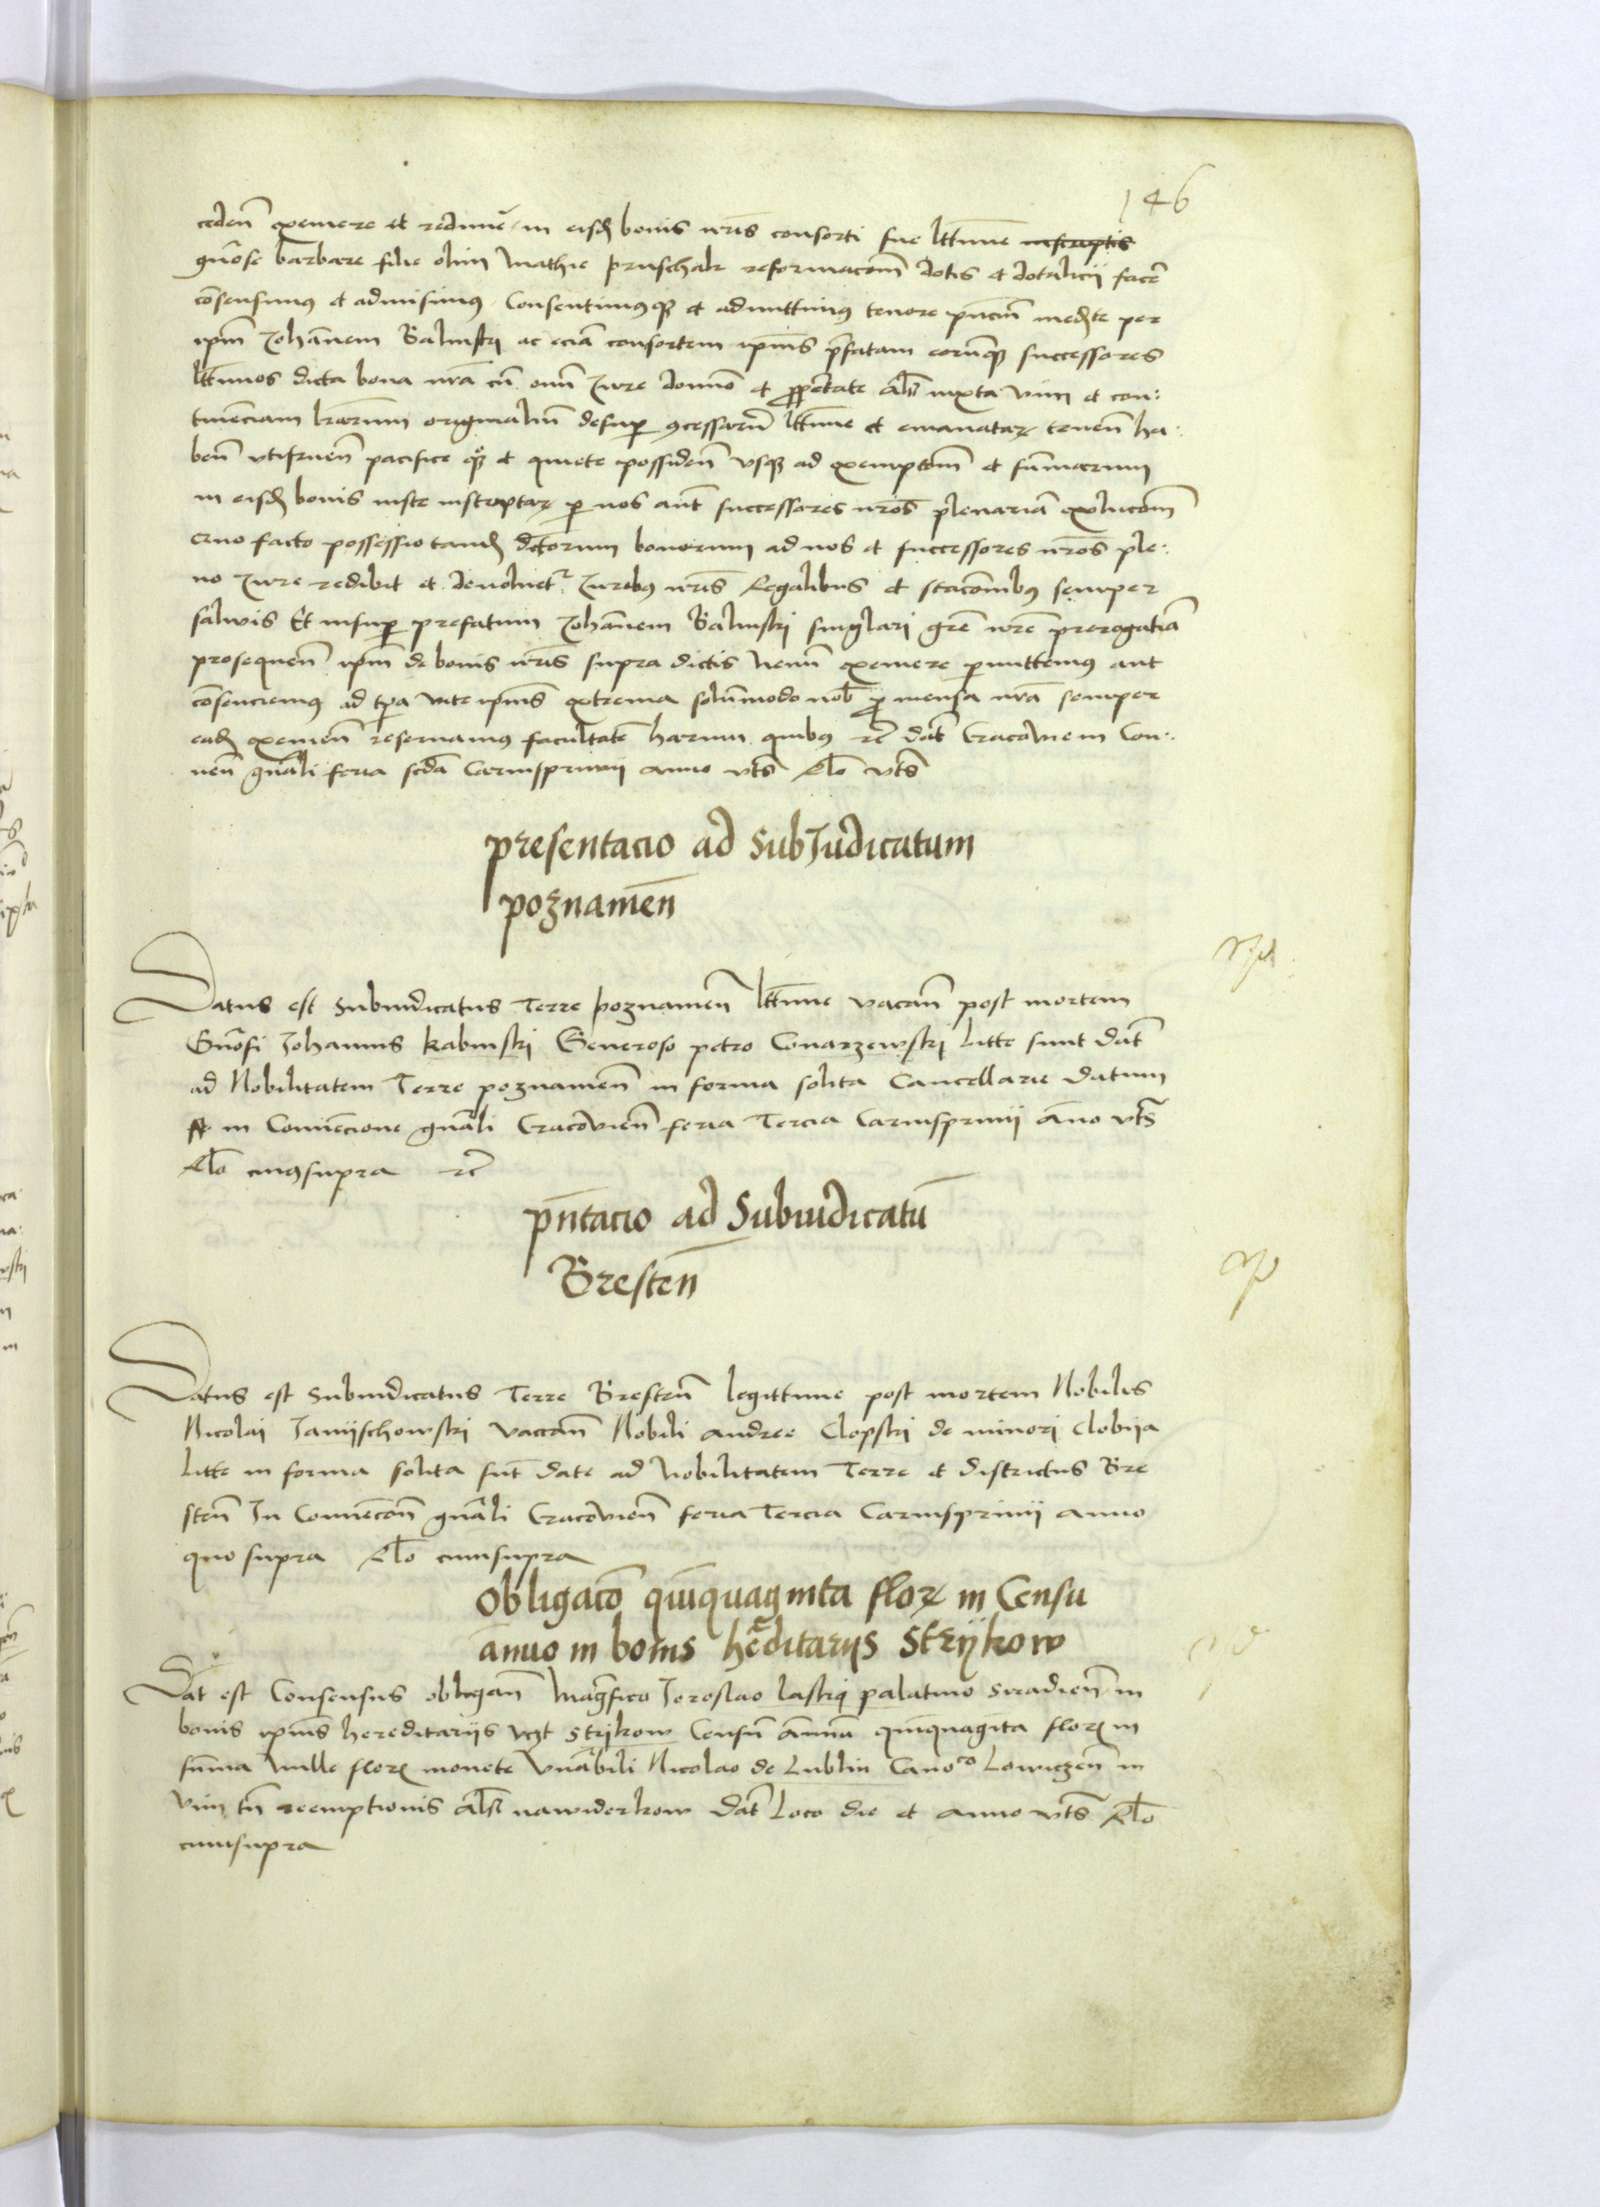 146
cedeñ exemere et redimē in eisdem bonis nr̃is consorti sue lttime inscriptis
gñose barbare filie olim Mathie pruschak reformacoem dotis et dotalicij facer̃
cõsensimus et admisimus Consentimusqz et admittimus tenore pñcium medñte per
ipm̃ Johañem Balinski ac eciã consortem ipius p̃fatam eorumqz successores
lttimos dicta bona nr̃a cũ omni Jure domio et proprietate als iuxta vim et con:
tinenciam lrarum originaliũ desup ꝯcessarũ lttime et emanatarꝫ teneñ ha:
beñ utifrueñ pacifice et quiete possideñ vsqz ad exempcoem et sum̃arum
in eisdem bonis iuste inscriptarꝫ p nos aut successores nr̃os plenariã exolucoem
quo facto possessio tandem dictorum bonorum ad nos et successores nr̃os ple:
no Jure redibit et devoluetr Juribus nr̃is Regalibus et stacõnibus semper
salvis Et insup prefatum Johañem Balinski singlari gr̃e nr̃e prerogatiã
prosequeñ ipm̃ de bonis nr̃is supra dictis nemi exemere pmittemus aut
cõsenciemus ad tpa vite ipius extrema solũmodo nob̃ p mensa nr̃a semper
eadem exemeñ reservamus facultatẽ harum quibus rc̃ dat̃ Cracovie in Con:
ueñ gñali feria sc̃da Carnisprivij anno vts Rlo vts
presentacio ad SubJudicatum
poznamen̄
Datus est subiudicatus Terre poznamen̄ lttime vacañ post mortem
Gñosi Johannis kabinski Generoso petro Conarzewski litte sunt dat̃
ad Nobilitatem Terre poznamen̄ in forma solita Cancellarie datum
in Convencione gñali Cracovien̄ feria Tercia Carnisprivij Año vts
Rlo cuiussupra rc̃
pñtacio ad Subiudicatũ
Bresten̄
Datus est subiudicatus Terre Bresten̄ legittime post mortem Nobilis
Nicolai Jamijschowski vacañ Nobili andree Clopski de minori Clobija
litte in forma solita sũt date ad Nobilitatem Terre et districtus Bre
sten̄ In Convencoñ gñali Cracovien̄ feria Tercia Carnisprivij anno
quo supra Rlo cuiussupra
Obligacõ quinquaginta florꝫ in Censu
ãnuo in bonis hereditarijs Strijkow
Dat̃ est Consensus obligañ Magfico Jeroslao laskij palatino Siradien̄ in
bonis ipius hereditarijs vcꝫt Strijkow Censũ Annuũ quinquagita florꝫ in
sum̃a Mille florꝫ monete Vnãbili Nicolao de Lublin Canoco Lowiczen̄ in
vim tñ reempcionis als nawiderkow Dat̃ loco die et anno vts Rlo
cuiussupra